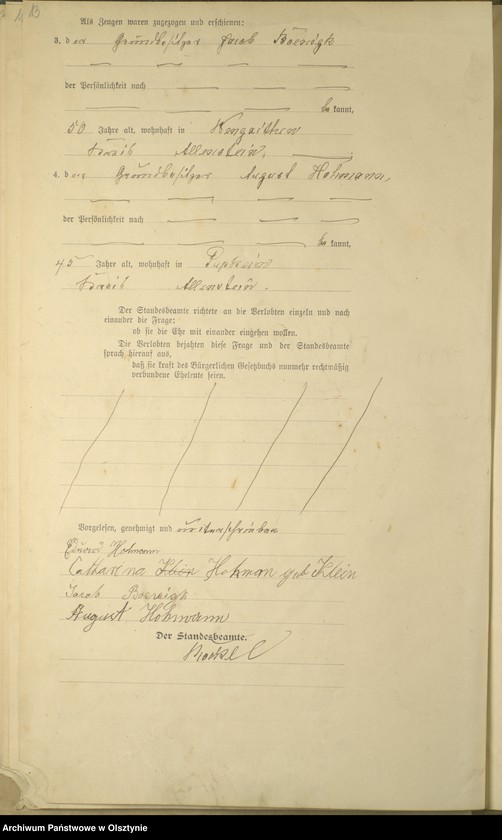 Als Zeugen waren zugezogen und erschienen:
3. der Grundbesitzer Jacob Boesigk
der Persönlichkeit nach
be kannt,
50 Jahre alt, wohnhaft in Wengaithen
Kreis Allenstein.
4. der Grundbesitzer August Hohmann,
der Persönlichkeit nach
be kannt,
45 Jahre alt, wohnhaft in
Kreis Allenstein.
Der Standesbeamte richtete an die Verlobten einzeln und nach
einander die Frage:
ob sie die Ehe mit einander eingehen wollen.
Die Verlobten bejahten diese Frage und der Standesbeamte
sprach hierauf aus,
daß sie kraft des Bürgerlichen Gesetzbuchs nunmehr rechtmäßig
verbundene Eheleute seien.
Vorgelesen, genehmigt und unterschrieben
Eduard Hohmann
Catharina Klein Hohman geb Klein
Jacob Boesigk
August Hohmann
Der Standesbeamte.
Archiwum Państwowe w Olsztynie